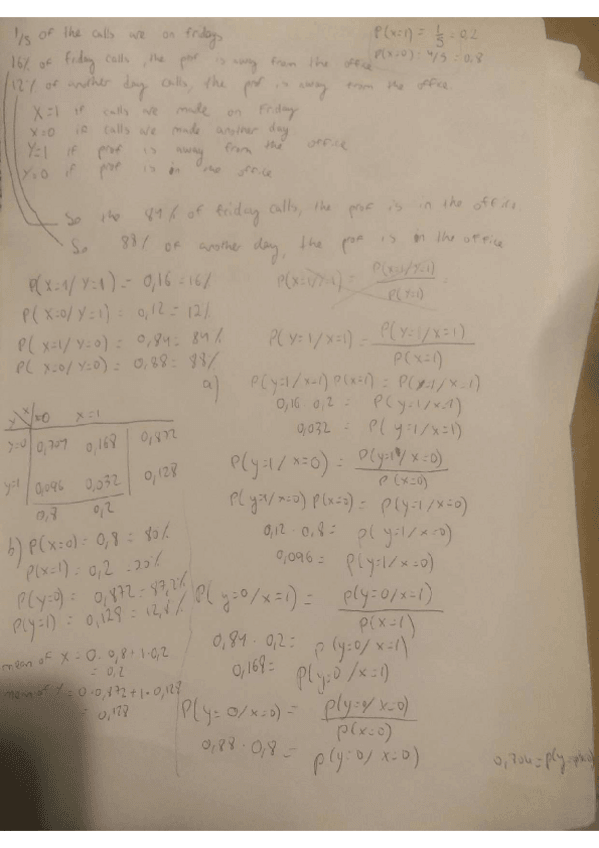 1/5 of the calls are on fridays
P(x=1) = 1/5 = 0,2
P(x=0) = 4/5 = 0,8
16% of friday calls, the prof is away from the office
12% of another day calls, the prof is away from the office
X=1 if calls are made on Friday
x=0 if calls are made another day
Y=1 if prof is away from the office
Y=0 if prof is in the office
So the 84% of friday calls, the prof is in the office
So 88% of another day, the prof is in the office
P(X=1/Y=1) = 0,16 = 16%
P(X=0/Y=1) = 0,12 = 12%
P(X=1/Y=0) = 0,84 = 84%
P(X=0/Y=0) = 0,88 = 88%
P(Y=1/X=1) = P(Y=1/X=1) / P(X=1)
a)
P(y=1/x=1) P(x=1) = P(y=1/x=1)
0,16 · 0,2 = P(y=1/x=1)
0,032 = P(y=1/x=1)
P(y=1/x=0) = P(y=1/x=0) / P(x=0)
P(y=1/x=0) P(x=0) = P(y=1/x=0)
0,12 · 0,8 = P(y=1/x=0)
0,096 = P(y=1/x=0)
P(y=0/x=1) = P(y=0/x=1) / P(x=1)
0,84 · 0,2 = P(y=0/x=1)
0,168 = P(y=0/x=1)
P(y=0/x=0) = P(y=0/x=0) / P(x=0)
0,88 · 0,8 = P(y=0/x=0)
Y X x=0 x=1
y=0 0,704 0,168 0,872
y=1 0,096 0,032 0,128
0,8 0,2
b) P(x=0) = 0,8 = 80%
P(x=1) = 0,2 = 20%
P(y=0) = 0,872 = 87,2%
P(y=1) = 0,128 = 12,8%
mean of X = 0 · 0,8 + 1 · 0,2
= 0,2
mean of Y = 0 · 0,872 + 1 · 0,128
= 0,128